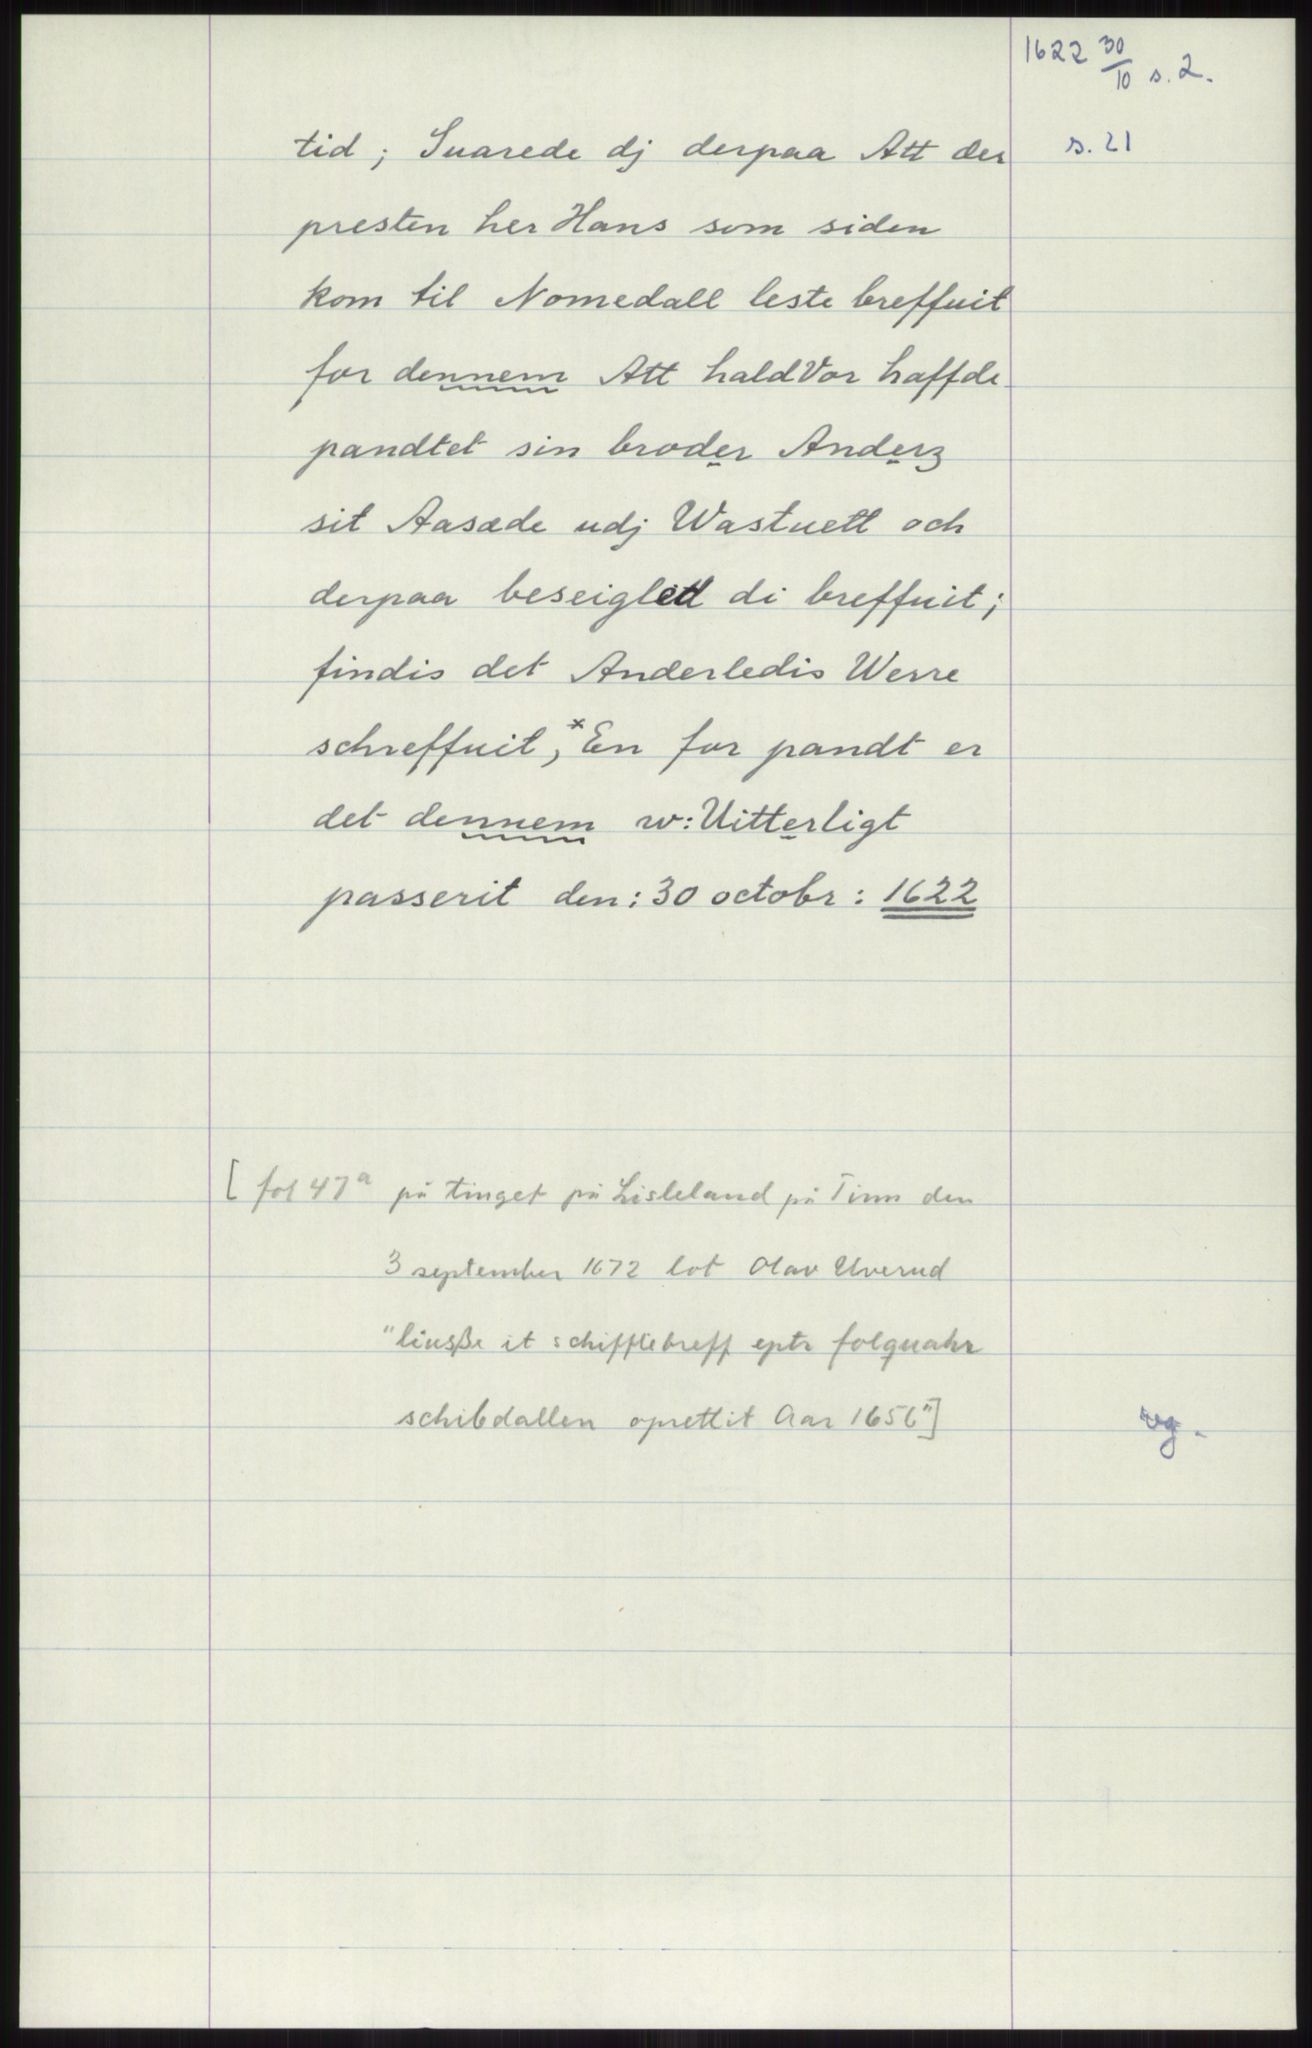 1622 30/10 s. 2.
s. 21
tid ; Suarede dj derpaa Att der
presten her Hans som siden
kom til Nomedall leste breffuit
for dennem Att haldVor haffde
pandtet sin broder Anderz
sit Aasæde udj Wastuett och
derpaa beseiglett di breffuit ;
findis det Anderledis Werre
schreffuit, x En for pandt er
det dennem w: Uitterligt
passerit den : 30 octobr : 1622
[ fol 47a på tinget på Lisleland på Tinn den
3 september 1672 lot Olav Uverud
"liusße it schifftebreff epte folquahr
schibdallen oprettit Aar 1656"]
vg.